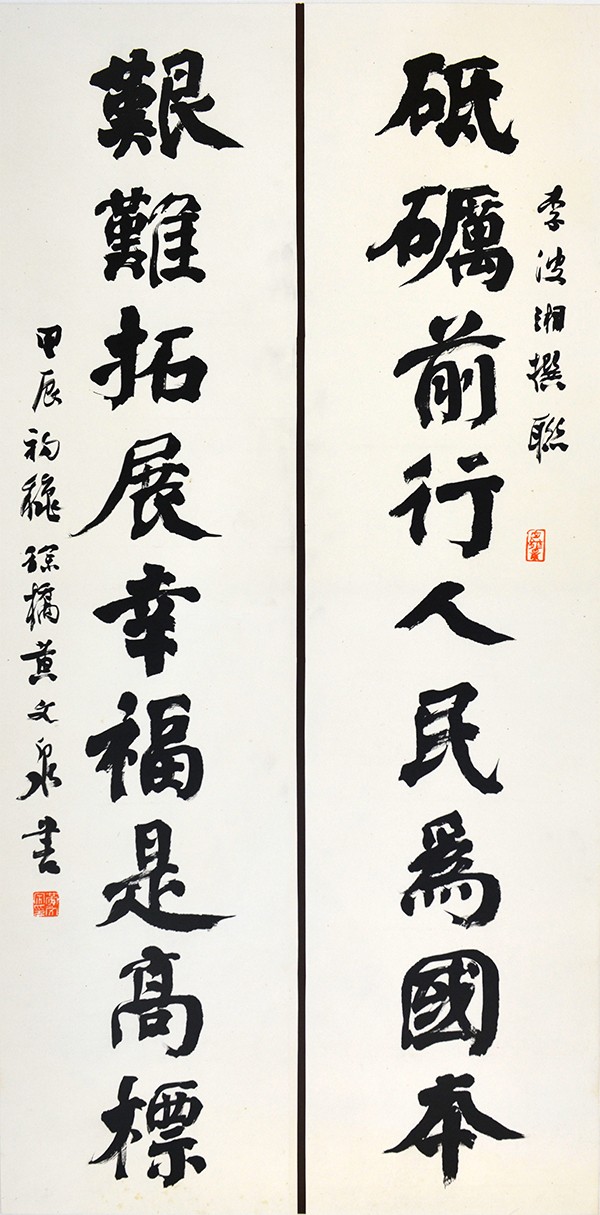 李波湘撰聯
砥礪前行人民爲國本
艱難拓展幸福是高標
甲辰初龝黄文泉書